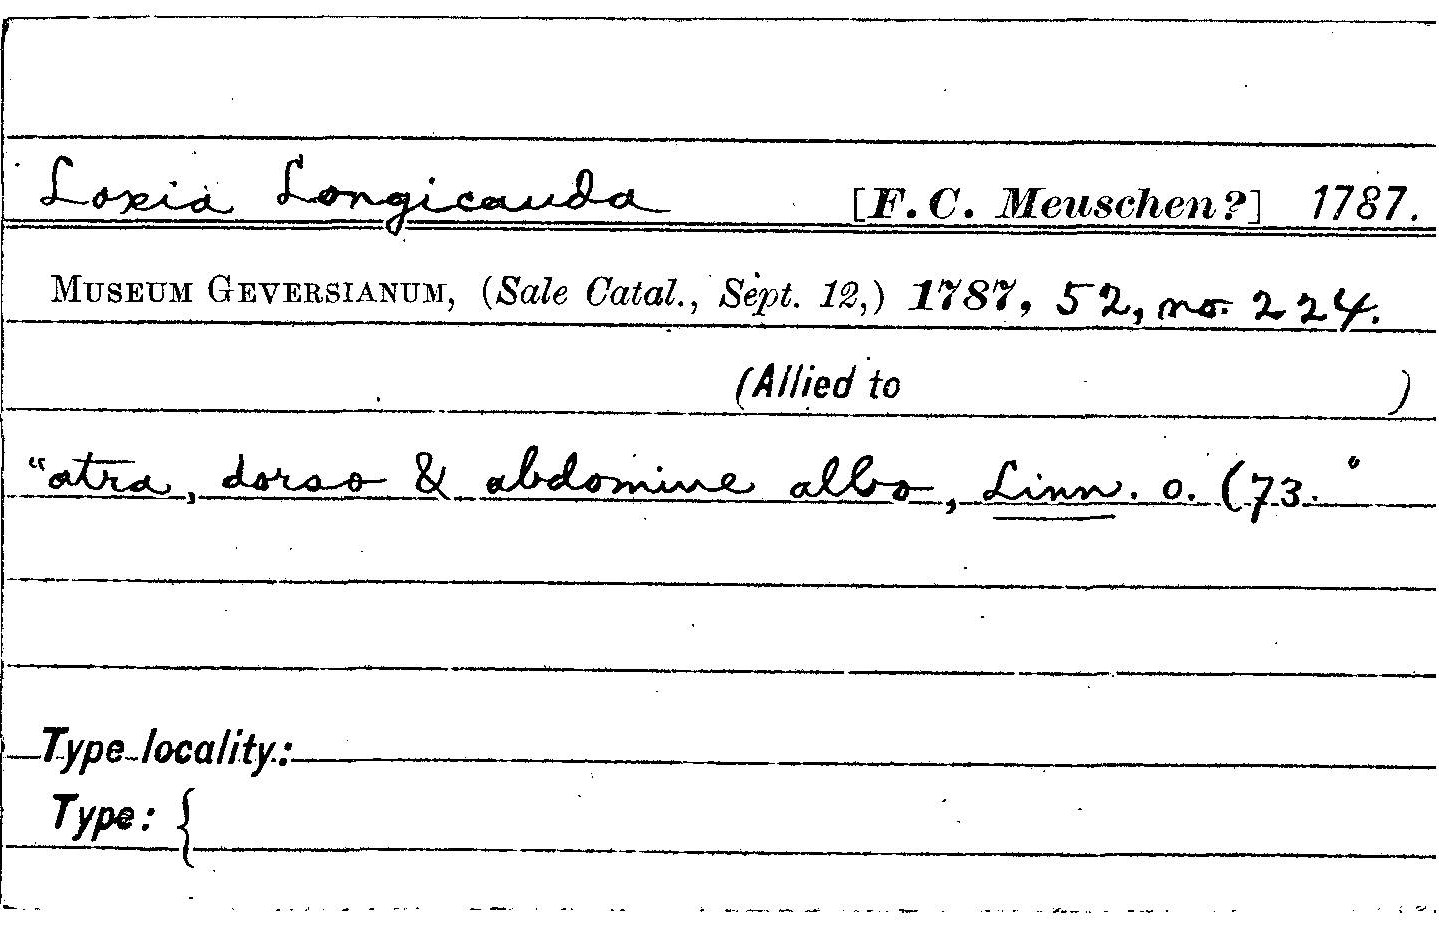 Loxia Longicauda [F. C. Meuschen?] 1787.
MUSEUM GEVERSIANUM, (Sale Catal., Sept. 12,) 1787, 52, no. 224.
(Allied to )
"atra, dorso & abdomine albo, Linn. o. (73."
Type locality:
Type: {